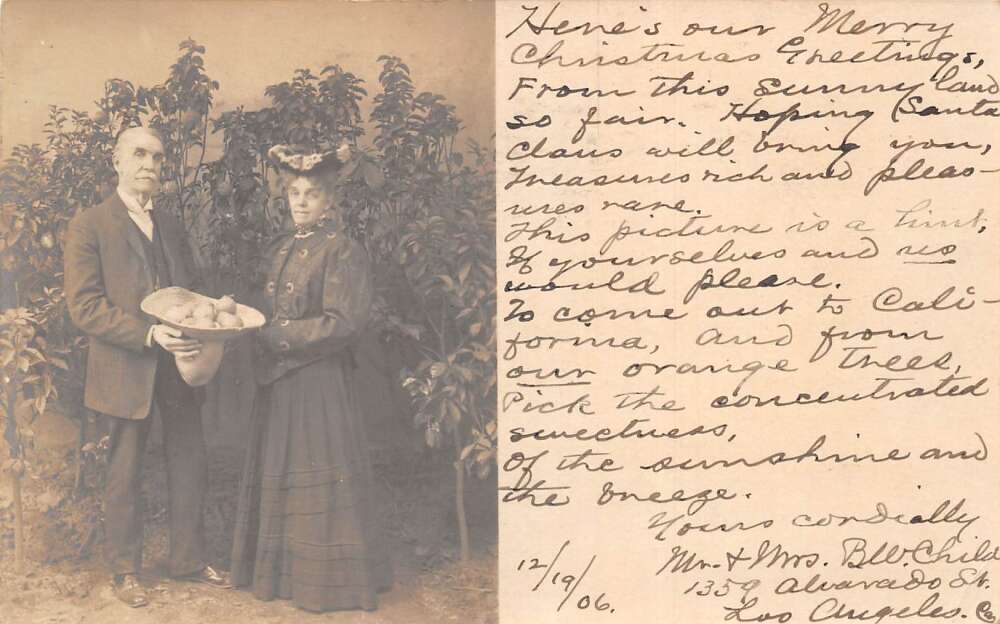 Here's our Merry
Christmas Greetings,
From this sunny land
so fair. Hoping Santa
Claus will bring you,
Treasures rich and pleas-
ures rare.
This picture is a hint,
If yourselves and us
would please.
To come out to Cali-
fornia, and from
our orange trees,
Pick the concentrated
sweetness,
Of the sunshine and
the breeze.
Yours cordially
Mr. & Mrs. B.W. Child
1359 Alvarado St.
Los Angeles. Ca
12/19/06.